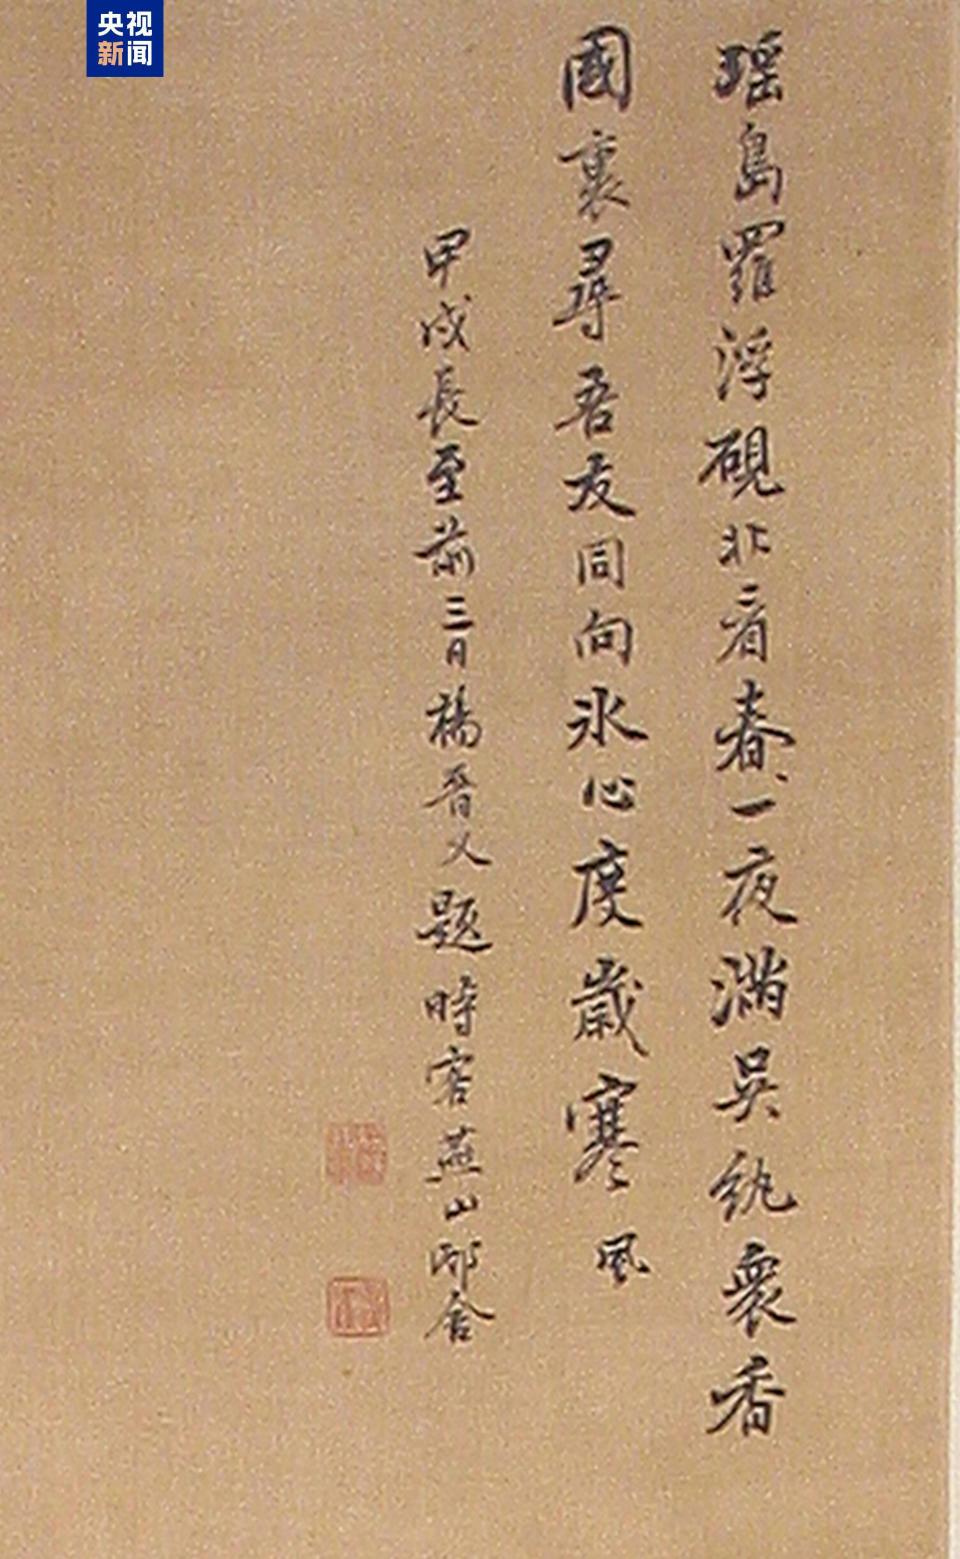 央视
新闻
瑶島羅浮硯北看春、一夜滿吳紈衆香
國裏尋吾友同向氷心度歲寒 風
甲戌長至前三日楊晋又題時客燕山邸舍